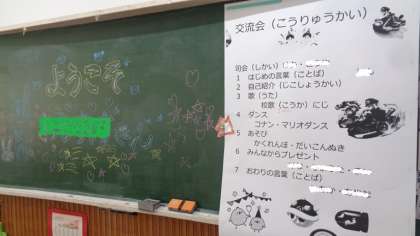 ようこそ
交流会（こうりゅうかい）
司会（しかい）
1 はじめの言葉（ことば）
2 自己紹介（じこしょうかい）
3 歌（うた）
校歌（こうか）にじ
4 ダンス
コナン・マリオダンス
5 あそび
かくれんぼ・だいこんぬき
6 みんなからプレゼント
7 おわりの言葉（ことば）